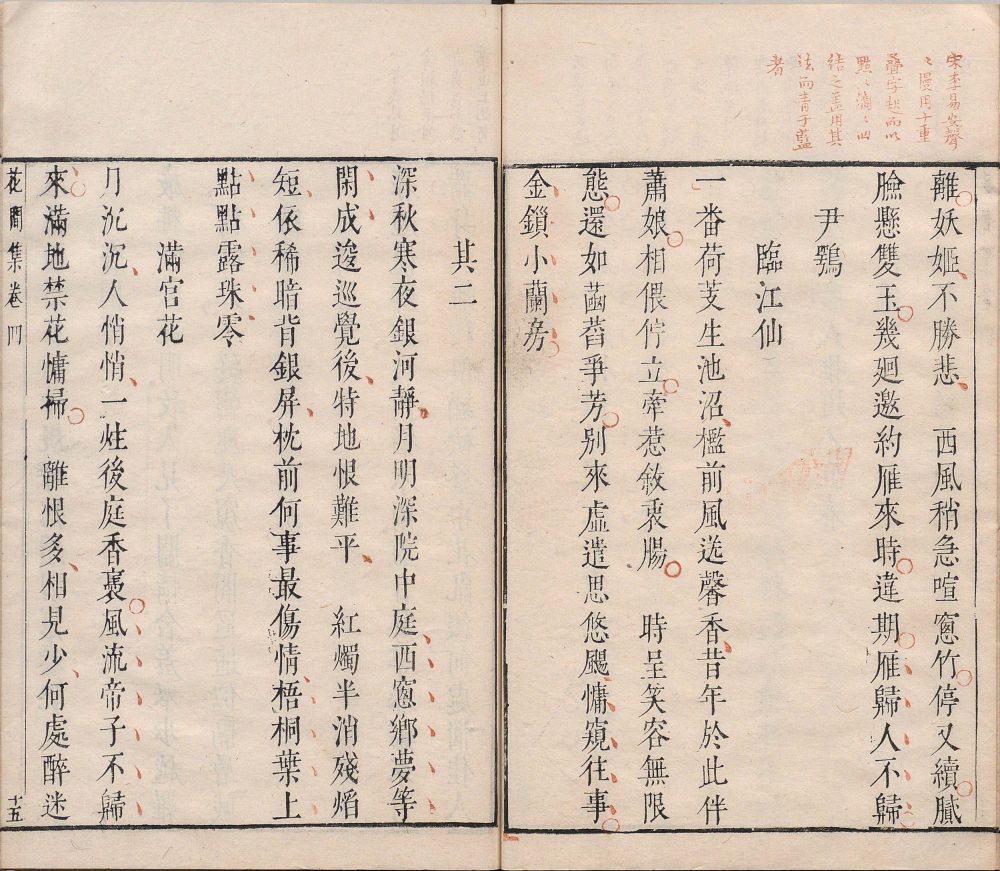 宋李易安聲
〻慢用十重
疊字起而以
點〻滴〻四
結之蓋用其
法而青于藍
者
離妖姬不勝悲　西風稍急喧窻竹停又續膩
臉懸雙玉幾廻邀約雁來時違期雁歸人不歸
尹鶚
臨江仙
一番荷芰生池沼檻前風送馨香昔年於此伴
蕭娘相偎佇立牽惹敘衷腸　時呈笑容無限
態還如菡萏爭芳別來虛遣思悠颺慵窺往事
金鎖小蘭房
其二
深秋寒夜銀河靜月明深院中庭西窻鄉夢等
閑成逡巡覺後特地恨難平　紅燭半消殘焰
短依稀暗背銀屏枕前何事最傷情梧桐葉上
點點露珠零
滿宮花
月沉沉人悄悄一炷後庭香裊風流帝子不歸
來滿地禁花慵掃　離恨多相見少何處醉迷
花間集卷四
十五